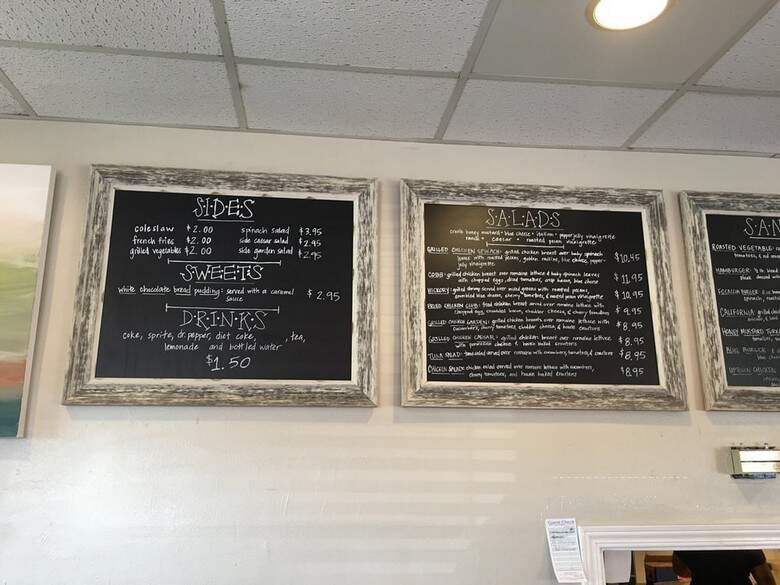 SIDES
coleslaw $2.00 spinach salad $3.95
french fries $2.00 side caesar salad $2.95
grilled vegetables $2.00 side garden salad $2.95
SWEETS
white chocolate bread pudding: served with a caramel
sauce $2.95
DRINKS
coke, sprite, dr. pepper, diet coke, , tea,
lemonade and bottled water
$1.50
SALADS
honey mustard • blue cheese • italian • pepper jelly vinaigrette
ranch • caesar • roasted pecan vinaigrette
GRILLED CHICKEN SPINACH: grilled chicken breast over baby spinach
with roasted pecans, golden raisins, blue cheese, pepper
jelly vinaigrette $10.95
COBB: grilled chicken breast over romaine lettuce & baby spinach leaves
with chopped eggs, dried tomatoes, crisp bacon, blue cheese $11.95
HICKORY: grilled shrimp served over mixed greens with roasted pecans
crumbled blue cheese, cherry tomatoes, & roasted pecan vinaigrette $10.95
FRIED CHICKEN CLUB: fried chicken breast served over romaine lettuce with
chopped egg, crumbled bacon, cheddar cheese, & cherry tomatoes $9.95
GRILLED CHICKEN GARDEN: grilled chicken breast over romaine lettuce with
cucumbers, cherry tomatoes, cheddar cheese, & house croutons $8.95
GRILLED CHICKEN CAESAR: grilled chicken breast over romaine lettuce
with parmesan cheese & house baked croutons $8.95
TUNA SALAD: tuna salad served over romaine with cucumbers, tomatoes, & croutons $8.95
CHICKEN SALAD: chicken salad served over romaine lettuce with cucumbers,
cherry tomatoes, and house baked croutons $8.95
SAN
ROASTED VEGETABLE
HAMBURGER
FOCACCIA
CALIFORNIA: grilled
HONEY MUSTARD TURKEY
CHICKEN